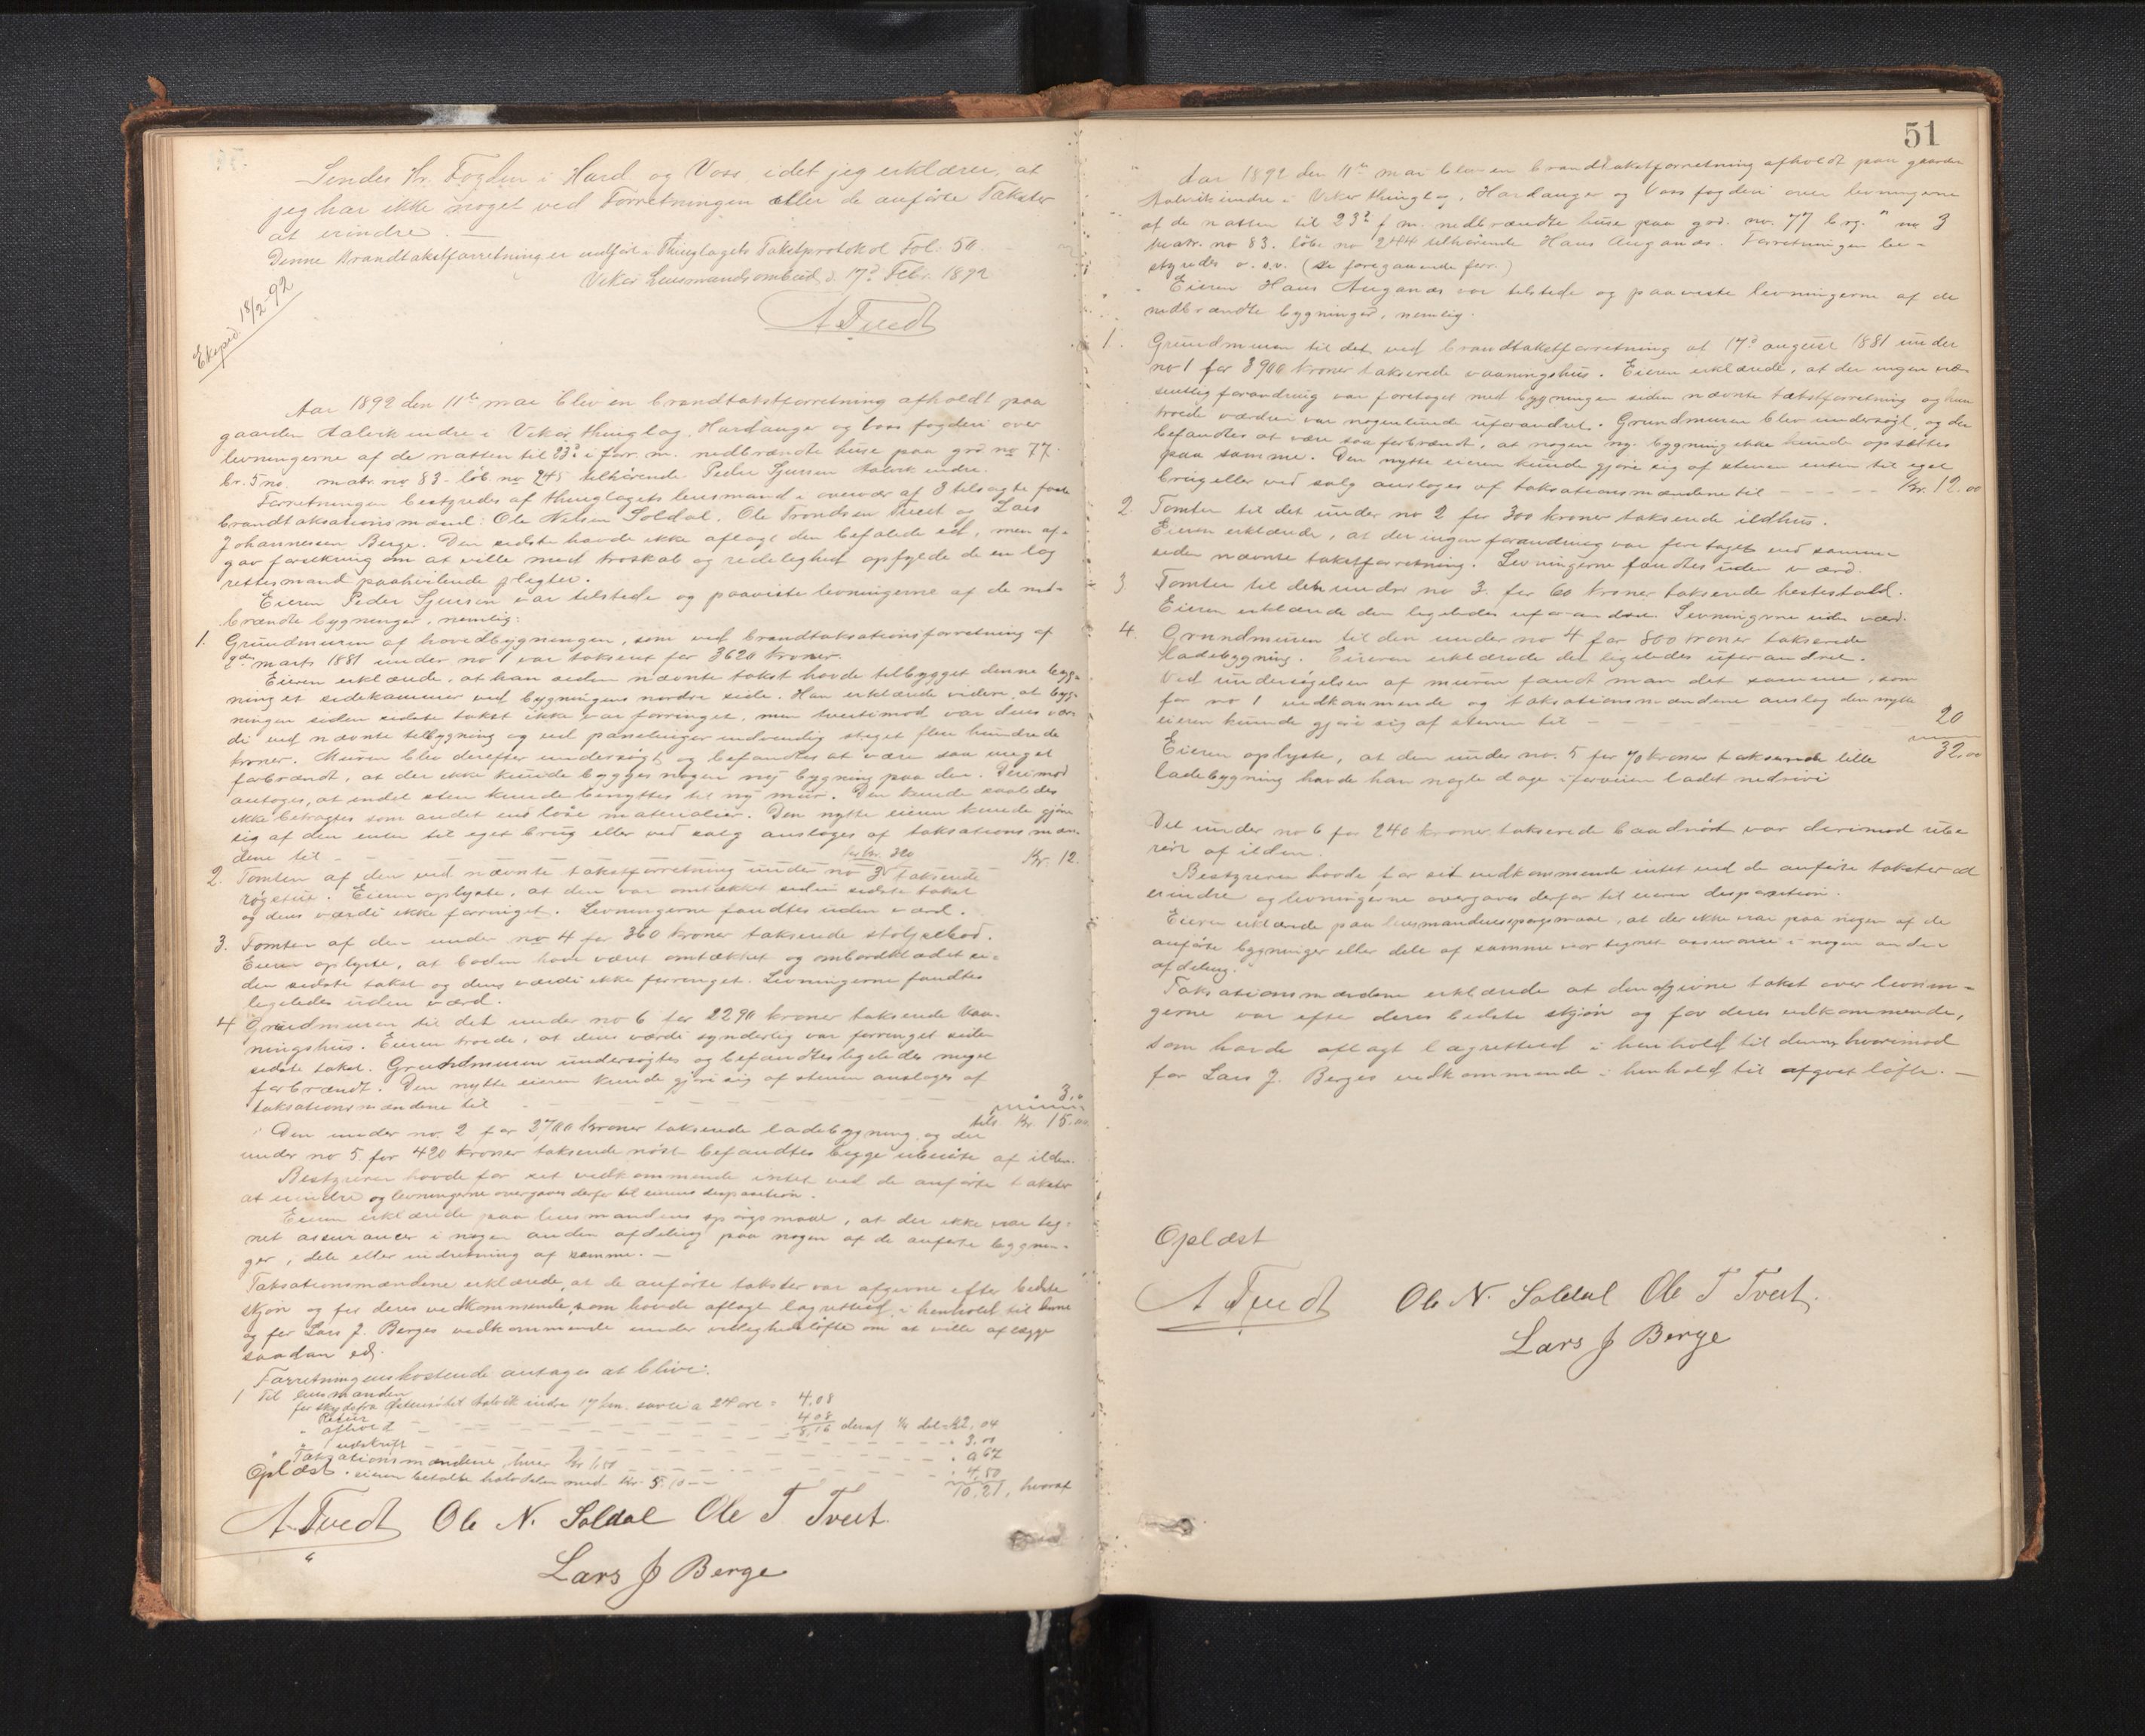 Sendes Hr. Fogden i Hard. og Voss, idet jeg erklærer, at
jeg har ikke noget ved Forretningen eller de anførte Takster
at erindre. —
Denne Brandtakstforretning er indført i Thinglagets Takstprotokol Fol. 50.
Vikør Lensmandsombud d. 17d Feb. 1892
A Tvedt
Eksped. 18/2-92
Aar 1892 den 11te mai blev en brandtakstforretning afholdt paa
gaarden Aalvik indre i Vikør thinglag, Hardanger og Voss fogderi over
levningerne af de natten til 23d i forr. m. nedbrændte huse paa grd no 77
br. 5 no. matr. no 83 - løb. no 245 tilhørende Peder Sjursen Aalvik indre.
Forretningen bestyredes af thinglagets lensmand i overvær af 3 tilsagte faste
brandtaksationsmænd: Ole Nilsen Soldal, Ole Trondsen Tveit og Lars
Johannessen Berge. Den sidste havde ikke aflagt den befalede ed, men af-
gav forsikring om at ville med troskab og redelighed opfylde de en lag
rettesmand paahvilende pligter.
Eieren Peder Sjursen var tilstede og paaviste levningerne af de ned-
brændte bygninger, nemlig:
1. Grundmuren af hovedbygningen, som ved brandtaksationsforretning af
9de marts 1881 under no 1 var takseret for 3620 kroner.
Eieren erklærede, at han siden nævnte takst havde tilbygget denne byg-
ning et sidekammer ved bygningens nordre side. Han erklærede videre, at byg-
ningen siden sidste takst ikke var forringet, men tvertimod var dens vær-
di ved nævnte tilbygning og ved panelinger indvendig steget flere hundrede
kroner. Muren blev derefter undersøgt og befandtes at være saa meget
forbrændt, at der ikke kunde bygges nogen ny bygning paa den. Derimod
antoges, at endel sten kunde benyttes til ny mur. Den kunde saaledes
ikke betragtes som andet end løse materialier. Den nytte eieren kunde gjøre
sig af den enten til eget brug eller ved salg ansloges af taksationsmæn-
dene til - - - Kr. 12.
for kr. 320
2. Tomten af den ved nævnte takstforretning under no 3 takserede
røgstue. Eieren oplyste, at den var omtækket siden sidste takst
og dens værdi ikke forringet. Levningerne fandtes uden værd.
3. Tomten af den under no 4 for 360 kroner takserede stolpebod.
Eieren oplyste, at boden have været omtækket og ombordklædet si-
den sidste takst og dens værdi ikke forringet. Levningerne fandtes
ligeledes uden værd.
4 Grundmuren til det under no 6 for 2290 kroner takserede vaa-
ningshus. Eieren troede, at dens værdi synderlig var forringet siden
sidste takst. Grundmuren undersøgtes og befandtes ligeledes meget
forbrændt. Den nytte eieren kunde gjøre sig af stenen ansloges af
taksationsmændene til - - - 3.
tils Kr. 15.00
Den under no. 2 for 2700 kroner takserede ladebygning og det
under no 5. for 420 kroner takserede nøst befandtes begge uberørte af ilden.
Bestyreren havde for sit vedkommende intet ved de anførte takster
at erindre og levningerne overgaves derfor til eierens disposition.
Eieren erklærede paa lensmandens spørgsmaal, at der ikke var teg-
net assurancer i nogen anden afdeling paa nogen af de anførte bygnin-
ger, dele eller indretning af samme. —
Taksationsmændene erklærede, at de anførte takster var afgivne efter bedste
skjøn og for deres vedkommende, som havde aflagt lagretteed, i henhold til denne
og for Lars J. Berges vedkommende under villighedsløfte om at ville aflægge
saadan ed.
Forretningens kostende antages at blive:
1 Til lensmanden
for skyds fra til Aalvik indre 17 km. søvei a 24 øre = 4,08
Retur 4 08
8,16 deraf 1/4 del = kr 2,04
" afhold - - - " 3,00
" udskrift - - - " 0 67
" Taksationsmændene, hver kr 1,50 - - - " 4,50
10,21, hvoraf
Oplæst. eieren betalte halvdelen med Kr. 5.10 —
A. Tvedt Ole N. Soldal Ole T Tveit.
Lars J Berge
51
Aar 1892 den 11te mai blev en brandtakstforretning afholdt paa gaarden
Aalvik indre i Vikør thinglag, Hardanger og Voss fogderi over levningerne
af de natten til 23d f. m. nedbrændte huse paa grd. no. 77 brg. " no 3
matr. no 83. løbe no 244 tilhørende Hans Auganæs. Forretningen be-
styredes o. s. v. (se foregaaende forr.)
Eieren Hans Auganæs var tilstede og paaviste levningerne af de
nedbrændte bygninger, nemlig.
1. Grundmuren til det ved brandtakstforretning af 17d august 1881 under
no 1 for 3900 kroner takserede vaaningshus. Eieren erklærede, at der ingen væ-
sentlig forandring var foretaget med bygningen siden nævnte takstforretning og han
troede værdien var nogenlunde uforandret. Grundmuren blev undersøgt, og den
befandtes at være saa forbrændt, at nogen ny bygning ikke kunde opsættes
paa samme. Den nytte eieren kunde gjøre sig af stenen enten til eget
brug eller ved salg ansloges af taksationsmændene til - - - Kr. 12.00
2. Tomten til det under no 2 for 300 kroner takserede ildhus.
Eieren erklærede, at der ingen forandring var foretaget ved samme
siden nævnte takstforretning. Levningerne fandtes uden værd.
3 Tomten til den under no 3. for 60 kroner takserede hestestald.
Eieren erklærede den ligeledes uforandret. Levningerne uden værd.
4. Grundmuren til den under no 4 for 800 kroner takserede
ladebygning. Eieren erklærede den ligeledes uforandret.
Ved undersøgelsen af muren fandt man det samme, som
for no 1 vedkommende og taksationsmændene anslog den nytte
eieren kunde gjøre sig af stenen til - - - 20
32.00
Eieren oplyste, at den under no. 5 for 70 kroner takserede lille
ladebygning havde han nogle dage iforveien ladet nedrive
Det under no 6 for 240 kroner takserede baadnøst var derimod ube
rørt af ilden.
Bestyreren havde for sit vedkommende intet ved de anførte takster at
erindre og levningerne overgaves derfor til eieren disposition.
Eieren erklærede paa lensmandens spørgsmaal, at der ikke var paa nogen af de
anførte bygninger eller dele af samme var tegnet assurance i nogen anden
afdeling.
Taksationsmændene erklærede at den afgivne takst over levnin-
gerne var efter deres bedste skjøn og for deres vedkommende,
som havde aflagt lagretteed i henhold til denne, hvorimod
for Lars J. Berges vedkommende i henhold til afgivet løfte. —
Oplæst
A Tvedt Ole N. Soldal Ole T Tveit.
Lars J Berge